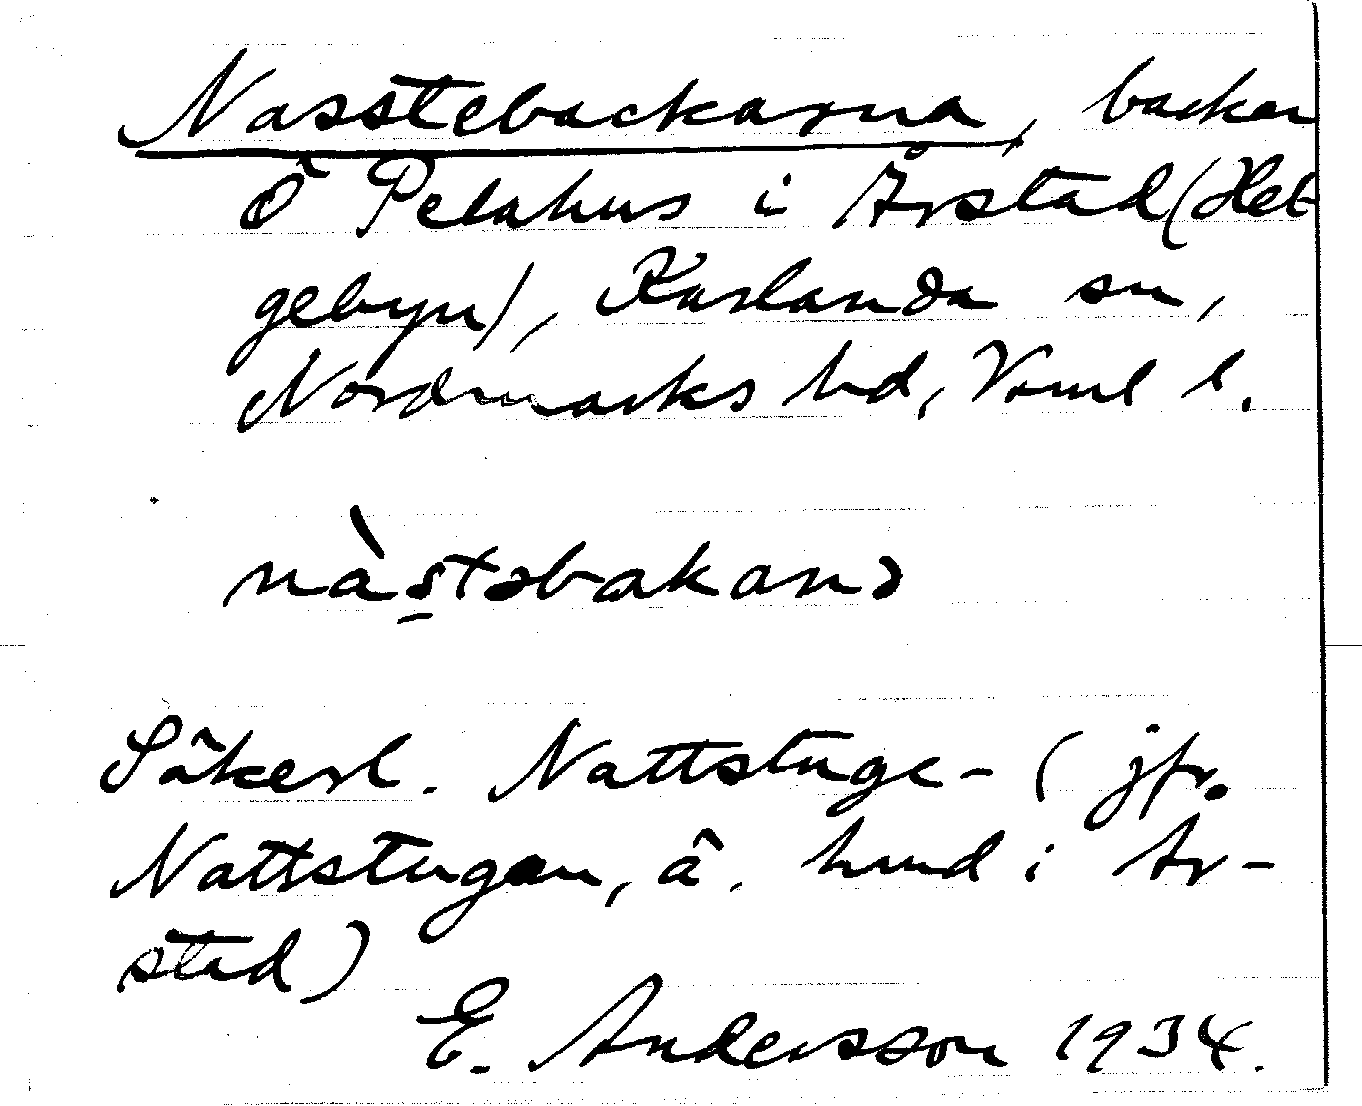 Nasstebackarna, backar
ö Pelahus i Årstad (Hel-
gebyn), Karlanda sn,
Nordmarks hd, Värml l.
nàstəbakanə
Säkerl. Nattstuge- (jfr.
Nattstugan, å. hmd i År-
stad)
E. Andersson 1934.